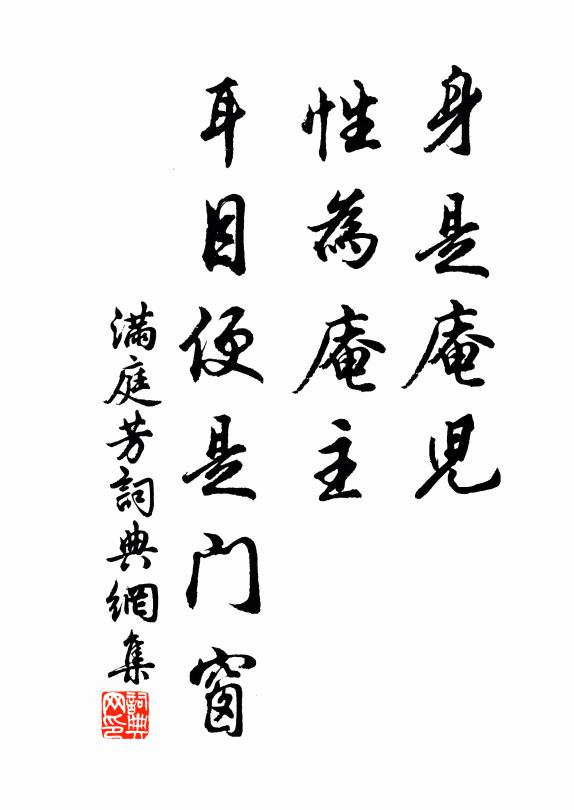 身是庵兒
性為庵主
耳目便是门窗
滿庭芳詞典網集
詞典网印